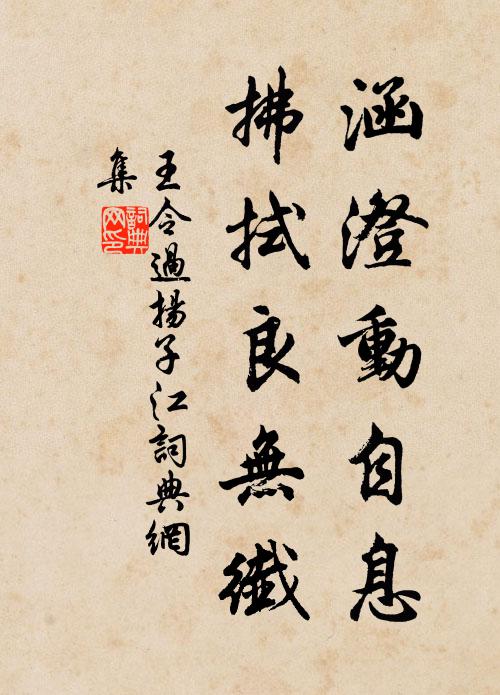 涵澄動自息
拂拭良無纖
王令過揚子江詞典網
集
詞典網印